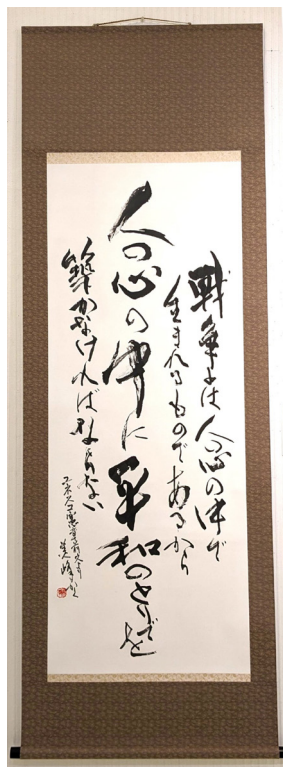 戦争は人の心の中で
生まれるものであるから
人の心の中に平和のとりでを
築かなければならない
ユネスコ憲章前文より